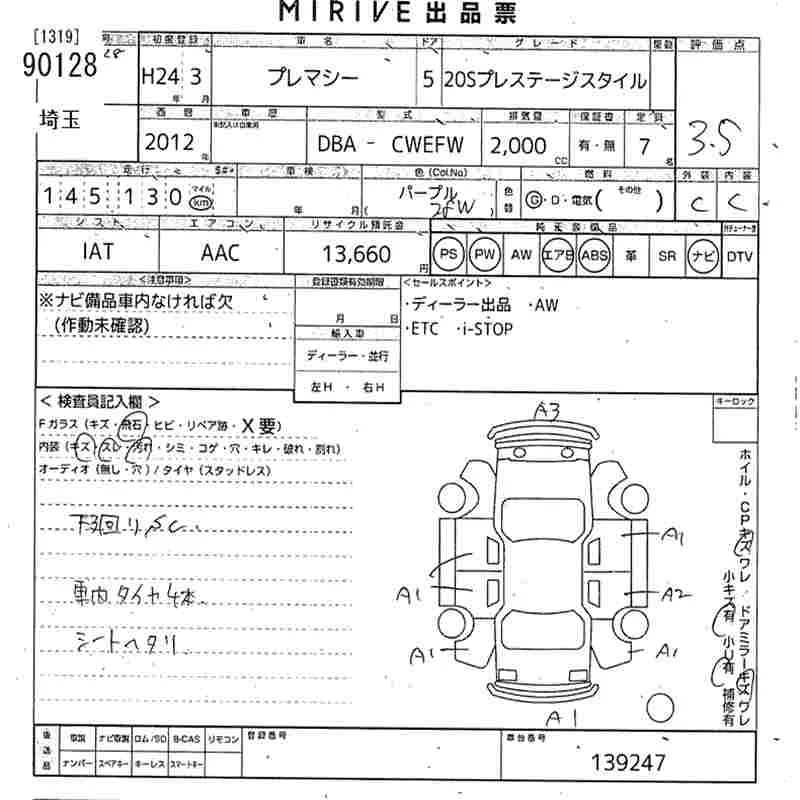 MIRIVE 出品票
[1319] 号 初度登録 車名 ドア グレード 型数 評価点
90128 28 H24 3 プレマシー 5 20Sプレステージスタイル
年 月
埼玉 西暦 車歴 型式 排気量 保証書 定員 3.5
未記入は自家用
2012 DBA - CWEFW 2,000 有・無 7
年 CC 名
走行 車検 色(Col.No) 燃料 外装 内装
145130 マイル km 年 月 パープル 色替 G・D・電気( その他 ) C C
シフト エアコン リサイクル預託金 純正装備品
IAT AAC 13,660 円 PS PW AW エアB ABS 革 SR ナビ DTV
<注意事項> 登録書類有効期限 <セールスポイント>
※ナビ備品車内なければ欠 ・ディーラー出品 ・AW
(作動未確認) 月 日 ・ETC ・i-STOP
輸入車
ディーラー・並行
左H ・ 右H
< 検査員記入欄 > キーロック
Fガラス (キズ・飛石・ヒビ・リペア跡・X要)
内装 (キズ・スレ・汚れ・シミ・コゲ・穴・キレ・破れ・割れ)
オーディオ (無し・穴) / タイヤ (スタッドレス)
下回り SC
車内 タイヤ 4本
シートヘタリ
A3
A1
A1
A2
A1
A1
A1
ホイル・CPキズワレ ドアミラーキズワレ
小キズ有 小U有 補修有
後送品 取説 ナビ取説 ロム/SD B-CAS リモコン 登録番号 車台番号
ナンバー スペアキー キーレス スマートキー 139247